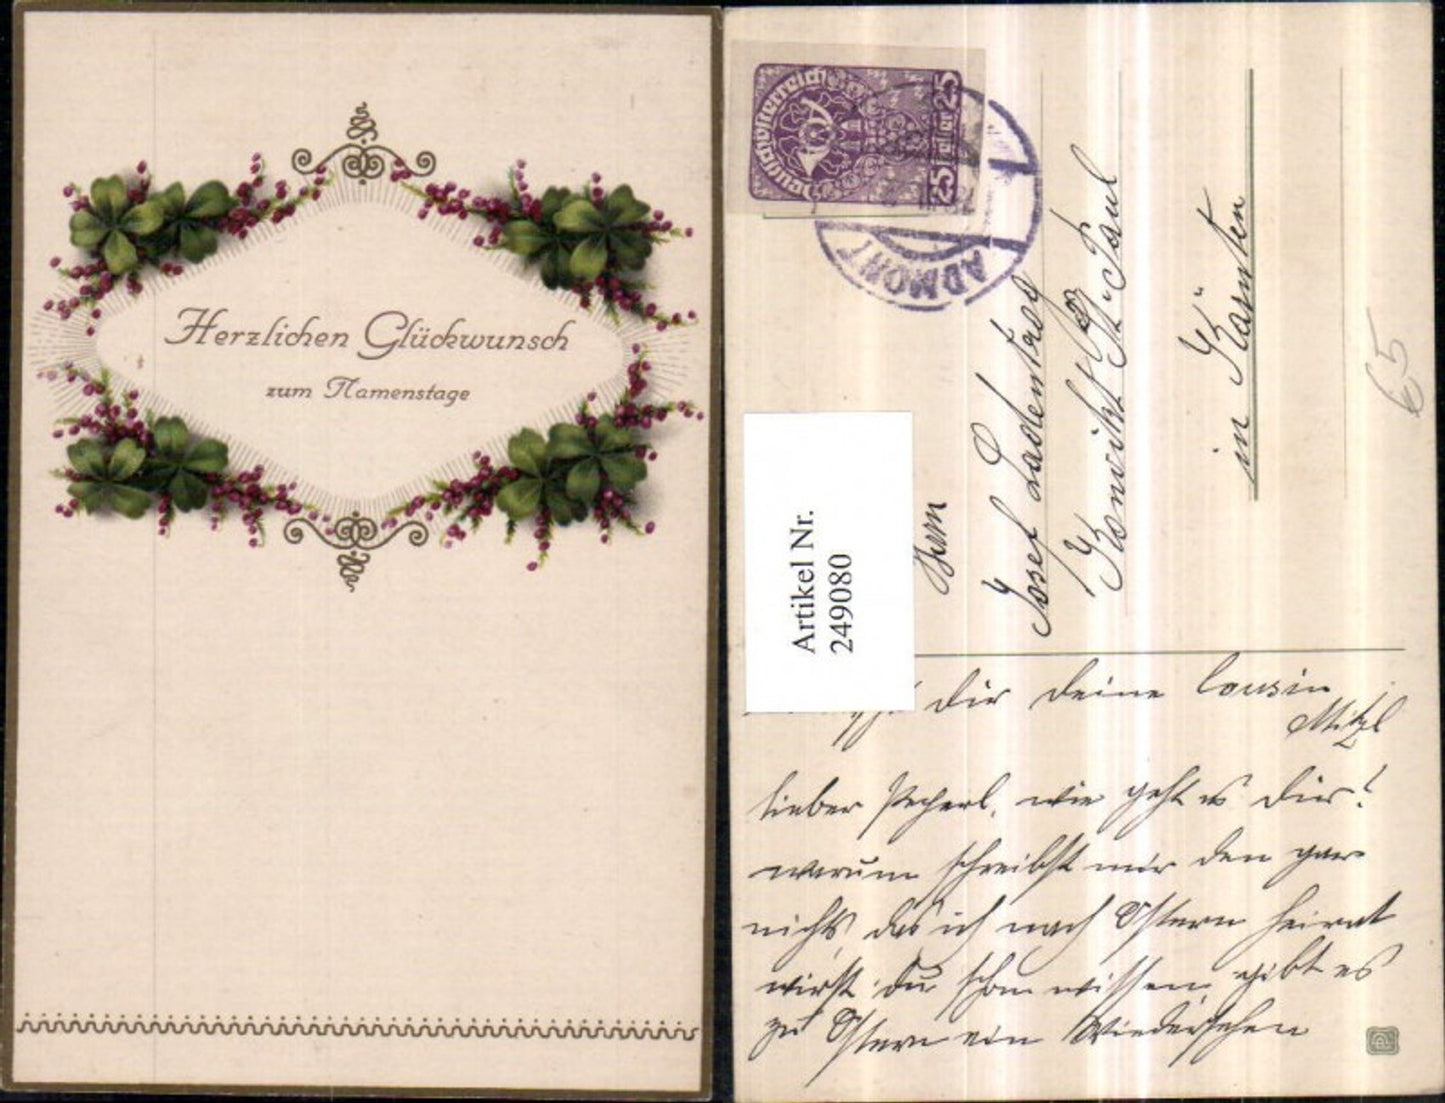 Herzlichen Glückwunsch
zum Namenstage
Deutschösterreich
25 Heller 25
ADMONT
Artikel Nr.
249080
Herrn
Josef Ladenstreg
Konvikt St. Paul
in Kärnten
€5
Dir deine Cousin
Mitzl
lieber Pepherl, wie geht es Dir?
warum schreibst mir den gar
nichts das ich nach Ostern heirat
wirst du schon wissen gibt es
zu Ostern ein Wiedersehen